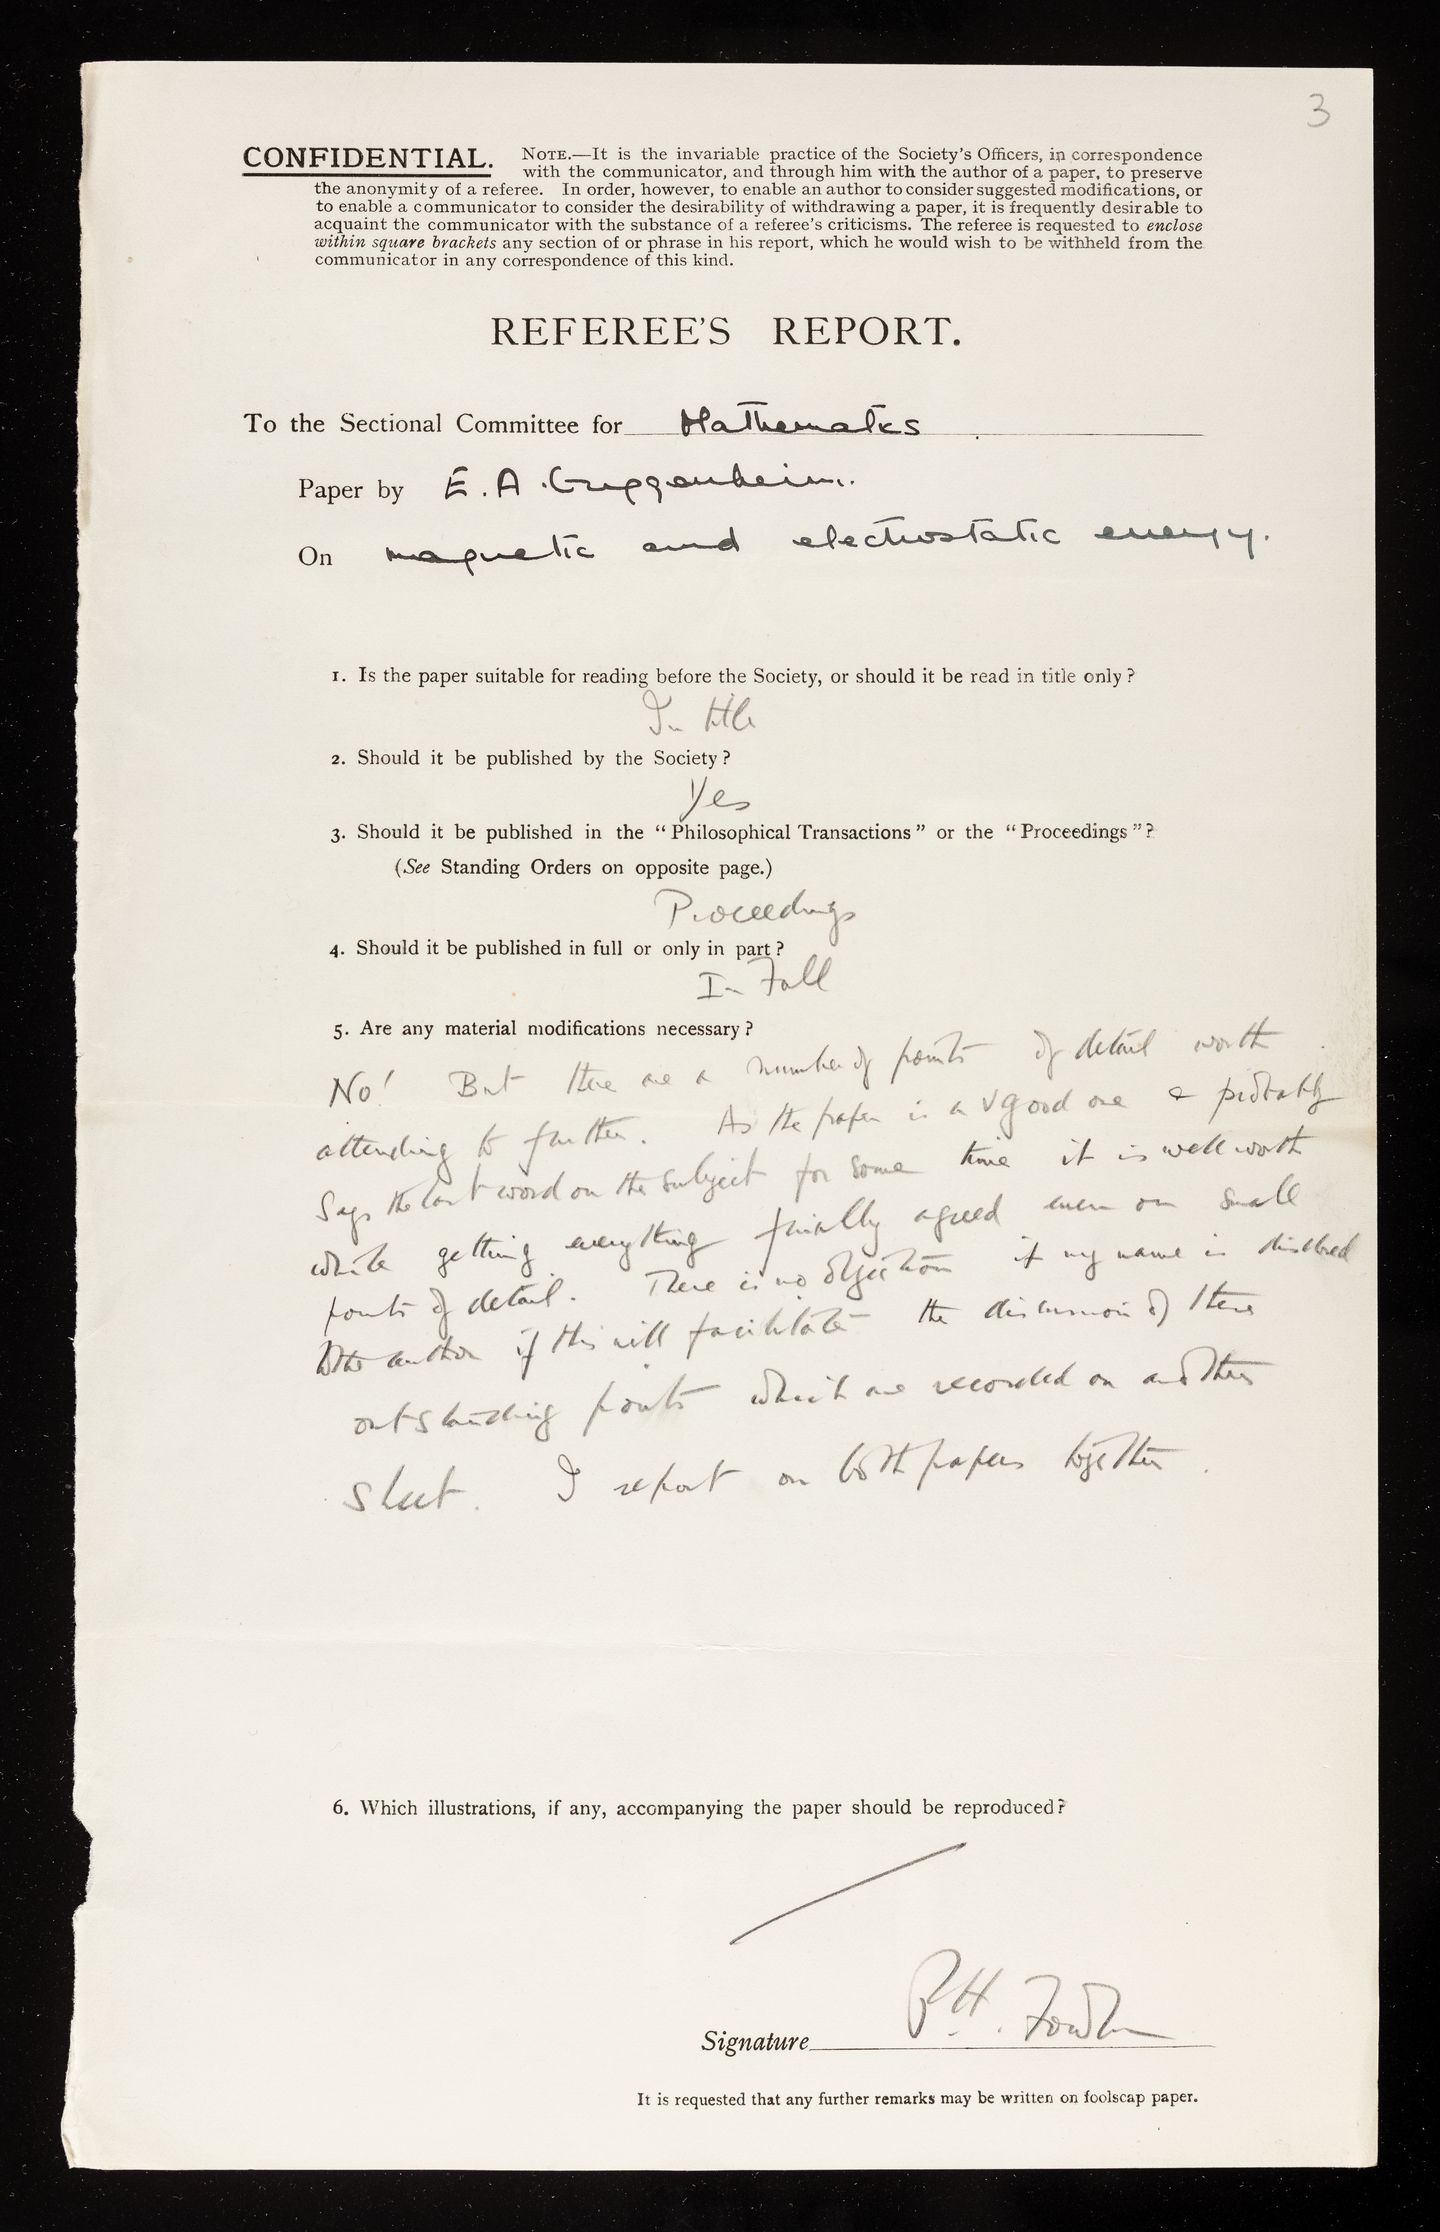 3
CONFIDENTIAL. NOTE.—It is the invariable practice of the Society's Officers, in correspondence
with the communicator, and through him with the author of a paper, to preserve
the anonymity of a referee. In order, however, to enable an author to consider suggested modifications, or
to enable a communicator to consider the desirability of withdrawing a paper, it is frequently desirable to
acquaint the communicator with the substance of a referee's criticisms. The referee is requested to enclose
within square brackets any section of or phrase in his report, which he would wish to be withheld from the
communicator in any correspondence of this kind.
REFEREE'S REPORT.
To the Sectional Committee for Mathematics
Paper by E. A. Guggenheim.
On magnetic and electrostatic energy.
1. Is the paper suitable for reading before the Society, or should it be read in title only?
In title
2. Should it be published by the Society?
Yes
3. Should it be published in the "Philosophical Transactions" or the "Proceedings"?
(See Standing Orders on opposite page.)
Proceedings
4. Should it be published in full or only in part?
In Full
5. Are any material modifications necessary?
No! But there are a number of points of detail worth
attending to further. As the paper is a v good one & probably
says the last word on the subject for some time it is well worth
while getting everything finally agreed even on small
points of detail. There is no objection if my name is disclosed
to the author if this will facilitate the discussion of these
outstanding points which are recorded on another
sheet. I report on both papers together.
6. Which illustrations, if any, accompanying the paper should be reproduced?
Signature R. H. Fowler
It is requested that any further remarks may be written on foolscap paper.